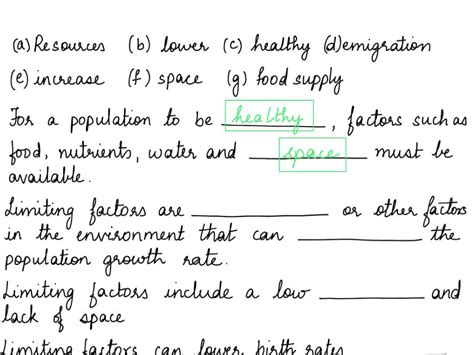 (a) Resources (b) lower (c) healthy (d) emigration
(e) increase (f) space (g) food supply
For a population to be healthy, factors such as
food, nutrients, water and space must be
available.
Limiting factors are ____________ or other factors
in the environment that can ____________ the
population growth rate.
Limiting factors include a low ____________ and
lack of space
Limiting factors can lower birth rates